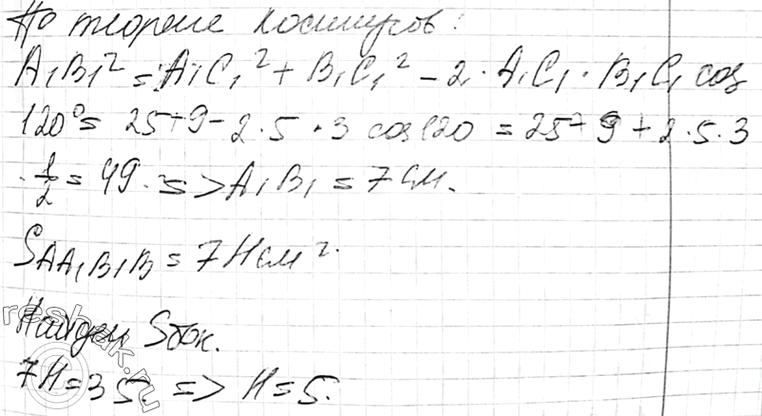 По теореме косинусов:
A₁B₁² = A₁C₁² + B₁C₁² - 2 · A₁C₁ · B₁C₁ cos
120° = 25 + 9 - 2 · 5 · 3 cos 120 = 25 + 9 + 2 · 5 · 3
· 1/2 = 49 => A₁B₁ = 7 см.
S AA₁B₁B = 7H см².
Найдем Sбок.
7H = 35 => H = 5.
reshak.ru